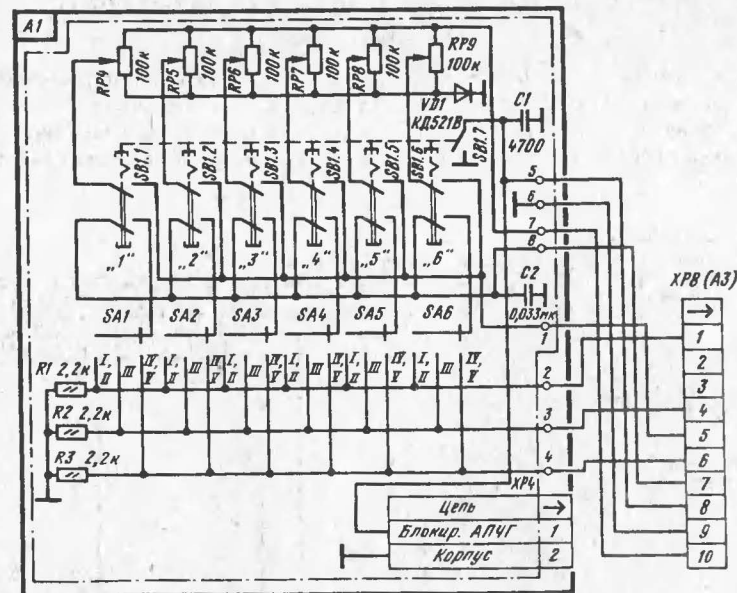 A1
RP4 100к RP5 100к RP6 100к RP7 100к RP8 100к RP9 100к
VD1 КД521В
C1 4700
SB1.1 SB1.2 SB1.3 SB1.4 SB1.5 SB1.6 SB1.7
5
6
7
8
„1" „2" „3" „4" „5" „6"
C2 0,033мк
XP8 (A3)
SA1 SA2 SA3 SA4 SA5 SA6
1
I, II III IV, V I, II III IV, V I, II III IV, V I, II III IV, V I, II III IV, V I, II III IV, V
R1 2,2к
2
R2 2,2к
3
R3 2,2к
4
XP4
Цепь →
Блокир. АПЧГ 1
Корпус 2
→
1
2
3
4
5
6
7
8
9
10